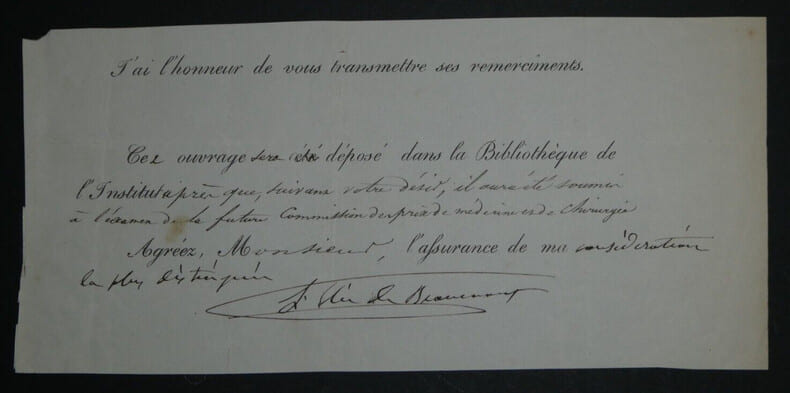 J'ai l'honneur de vous transmettre ses remerciments.
Cet ouvrage sera été déposé dans la Bibliothèque de
l'Institut après que, suivant votre désir, il aura été soumis
à l'examen de la future Commission des prix de médecine et de Chirurgie
Agréez, Monsieur, l'assurance de ma considération
la plus distinguée
L. Élie de Beaumont